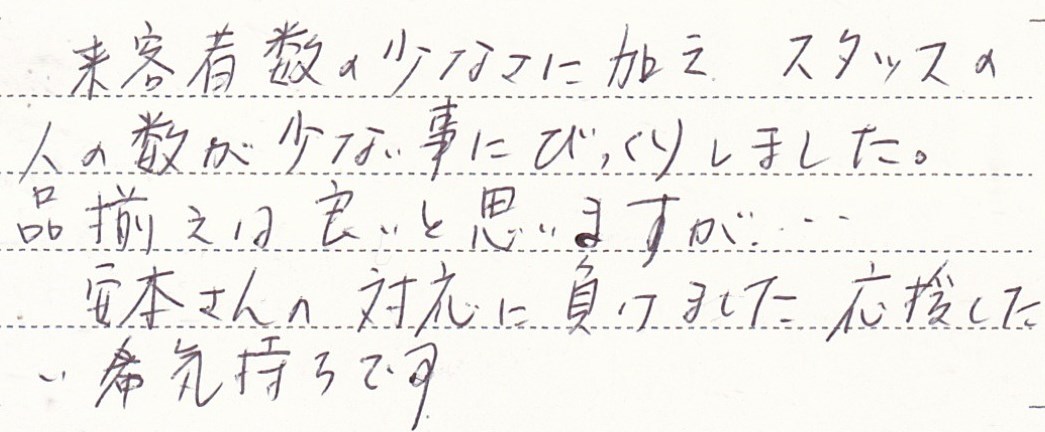 来客者数の少なさに加え スタッフの
人の数が少ない事にびっくりしました。
品揃えは良いと思いますが‥‥
安本さんの対応に負けました 応援した
い 気持ちです